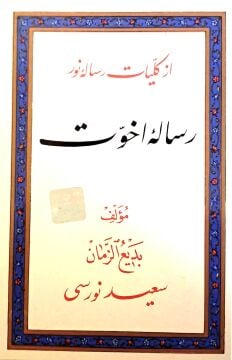 از کلیّات رسالهٔ نور
رسالهٔ اخوّت
مؤلف
بدیعُ الزّمان
سعید نورسی